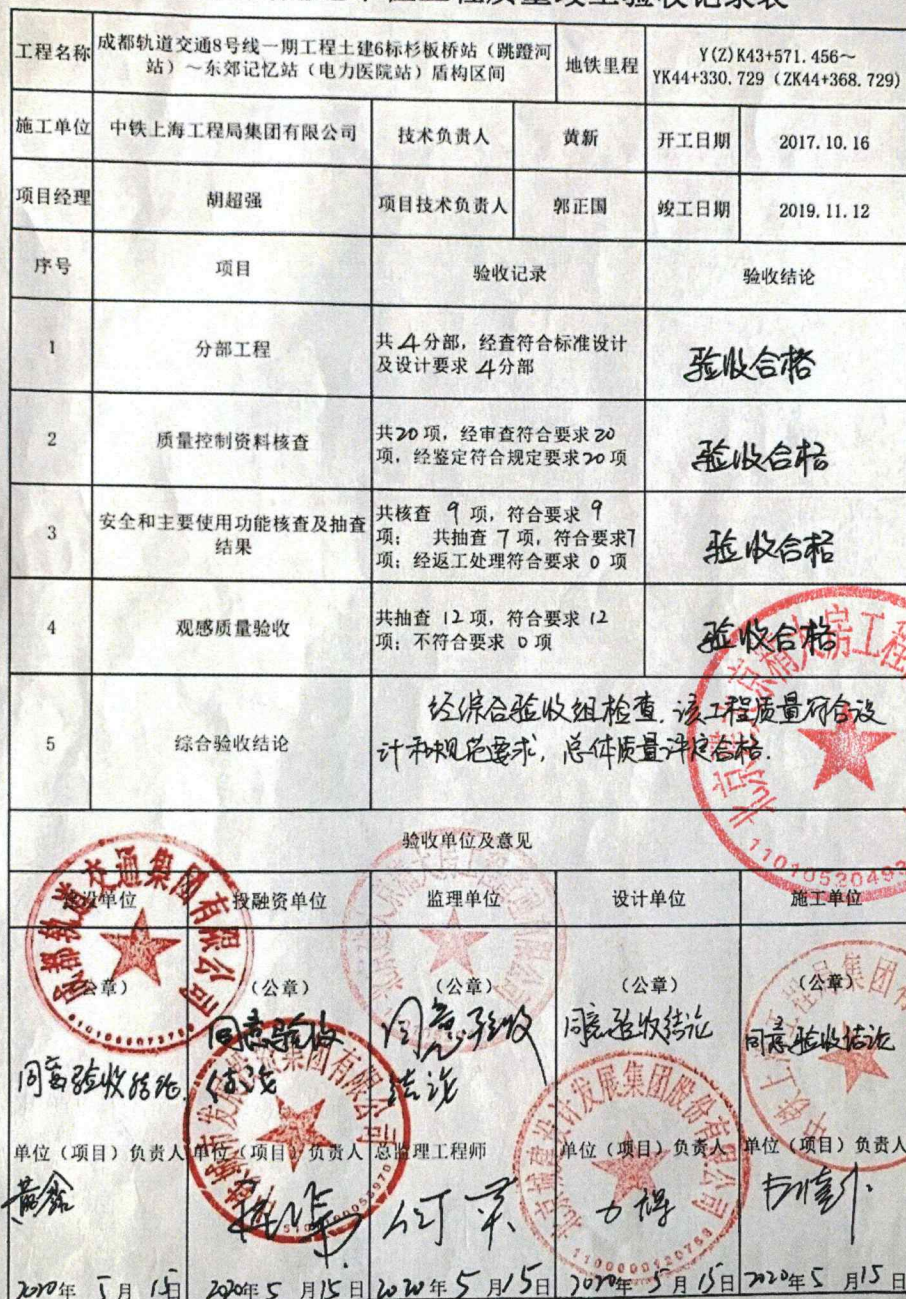 工程名称
成都轨道交通8号线一期工程土建6标杉板桥站（跳蹬河
站）～东郊记忆站（电力医院站）盾构区间
地铁里程
Y(Z)K43+571.456～
YK44+330.729（ZK44+368.729）
施工单位 中铁上海工程局集团有限公司 技术负责人 黄新 开工日期 2017.10.16
项目经理 胡超强 项目技术负责人 郭正国 竣工日期 2019.11.12
序号 项目 验收记录 验收结论
1 分部工程
共4分部，经查符合标准设计
及设计要求 4分部
验收合格
2 质量控制资料核查
共20项，经审查符合要求20
项，经鉴定符合规定要求20项
验收合格
3
安全和主要使用功能核查及抽查
结果
共核查 9 项，符合要求 9
项； 共抽查 7 项，符合要求7
项；经返工处理符合要求 0 项
验收合格
4 观感质量验收
共抽查 12 项，符合要求 12
项；不符合要求 0 项
验收合格
5 综合验收结论
经综合验收组检查，该工程质量符合设
计和规范要求，总体质量评定合格.
验收单位及意见
建设单位 投融资单位 监理单位 设计单位 施工单位
（公章） （公章） （公章） （公章） （公章）
同意验收结论
同意验收
结论
同意验收
结论
同意验收结论
同意验收结论
单位（项目）负责人 单位（项目）负责人 总监理工程师 单位（项目）负责人 单位（项目）负责人
黄鑫
2020年 5月 15日 2020年 5 月15日 2020年 5 月15日 2020年 5月 15日 2020年 5 月15日
成都轨道交通集团有限公司